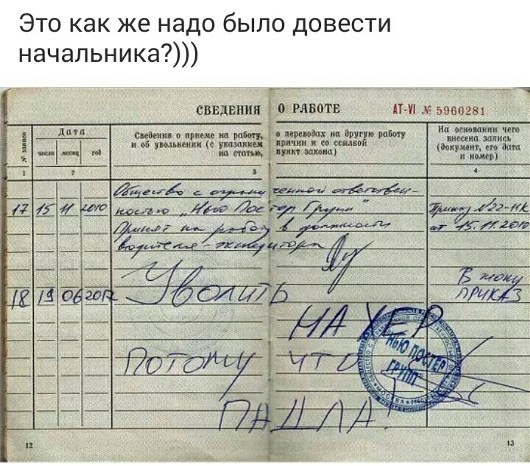 Это как же надо было довести
начальника?)))
СВЕДЕНИЯ О РАБОТЕ АТ-VI № 5960281
№ записи
Дата
число месяц год
Сведения о приеме на работу, о переводах на другую работу
и об увольнении (с указанием причин и со ссылкой
на статью, пункт закона)
На основании чего
внесена запись
(документ, его дата
и номер)
1 2 3 4
Общество с ограниченной ответствен-
17 15 11 2010 ностью "Нью Постер Групп" Приказ №22-НК
Принят на работу в должности от 15.11.2010
водителя-экспедитора
18 19 06 2012 Уволить В жопу
ПРИКАЗ
НА ХЕР
ПОТОМУ ЧТО
ПАДЛА!
НЬЮ ПОСТЕР
ГРУПП
МОСКВА
12 13